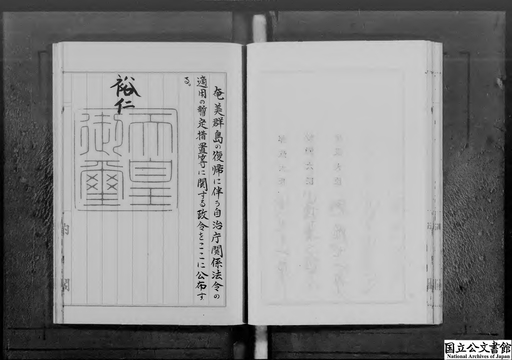 奄美群島の復帰に伴う自治庁関係法令の
適用の暫定措置等に関する政令をここに公布す
る。
裕仁
天皇
御璽
国立公文書館
National Archives of Japan